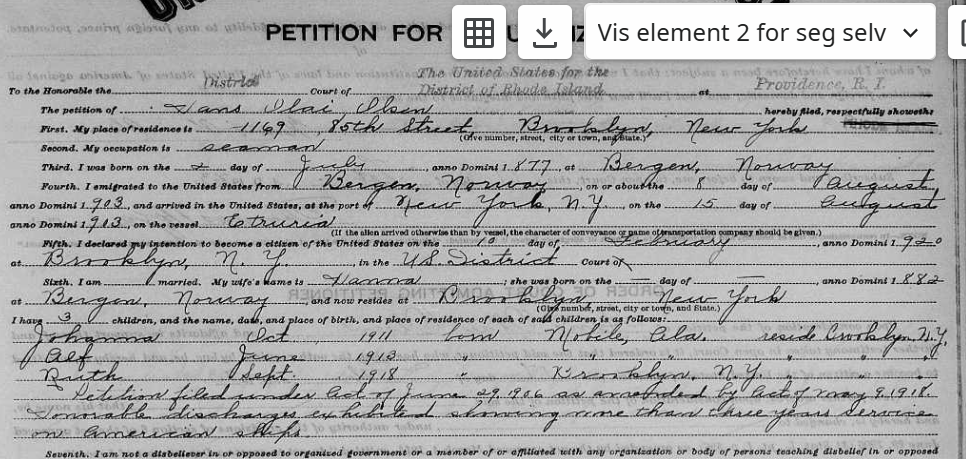 PETITION FOR
Vis element 2 for seg selv
District The United States for the
To the Honorable the Court of District of Rhode Island at Providence, R. I.
The petition of Hans Olai Olsen hereby filed, respectfully showeth:
First. My place of residence is 1169 85th Street, Brooklyn, New York
(Give number, street, city or town, and State.)
Second. My occupation is seaman
Third. I was born on the 2 day of July anno Domini 1877, at Bergen, Norway
Fourth. I emigrated to the United States from Bergen, Norway, on or about the 8 day of August,
anno Domini 1903, and arrived in the United States, at the port of New York, N.Y. on the 15 day of August
anno Domini 1903, on the vessel Etruria
(If the alien arrived otherwise than by vessel, the character of conveyance or name of transportation company should be given.)
Fifth. I declared my intention to become a citizen of the United States on the 10 day of February, anno Domini 1920
at Brooklyn, N. Y. in the U.S. District Court of
Sixth. I am married. My wife's name is Hanna; she was born on the — day of —, anno Domini 1882
at Bergen, Norway, and now resides at Brooklyn, New York
(Give number, street, city or town, and State.)
I have 3 children, and the name, date, and place of birth, and place of residence of each of said children is as follows:
Johanna Oct 1911 born Mobile, Ala. reside Brooklyn, N.Y.
Alf June 1913 " " " " "
Ruth Sept. 1918 " Brooklyn, N.Y. " " "
Petition filed under Act of June 29, 1906 as amended by Act of May 9, 1918.
Honorable discharges exhibited showing more than three years service
on American ships
Seventh. I am not a disbeliever in or opposed to organized government or a member of or affiliated with any organization or body of persons teaching disbelief in or opposed